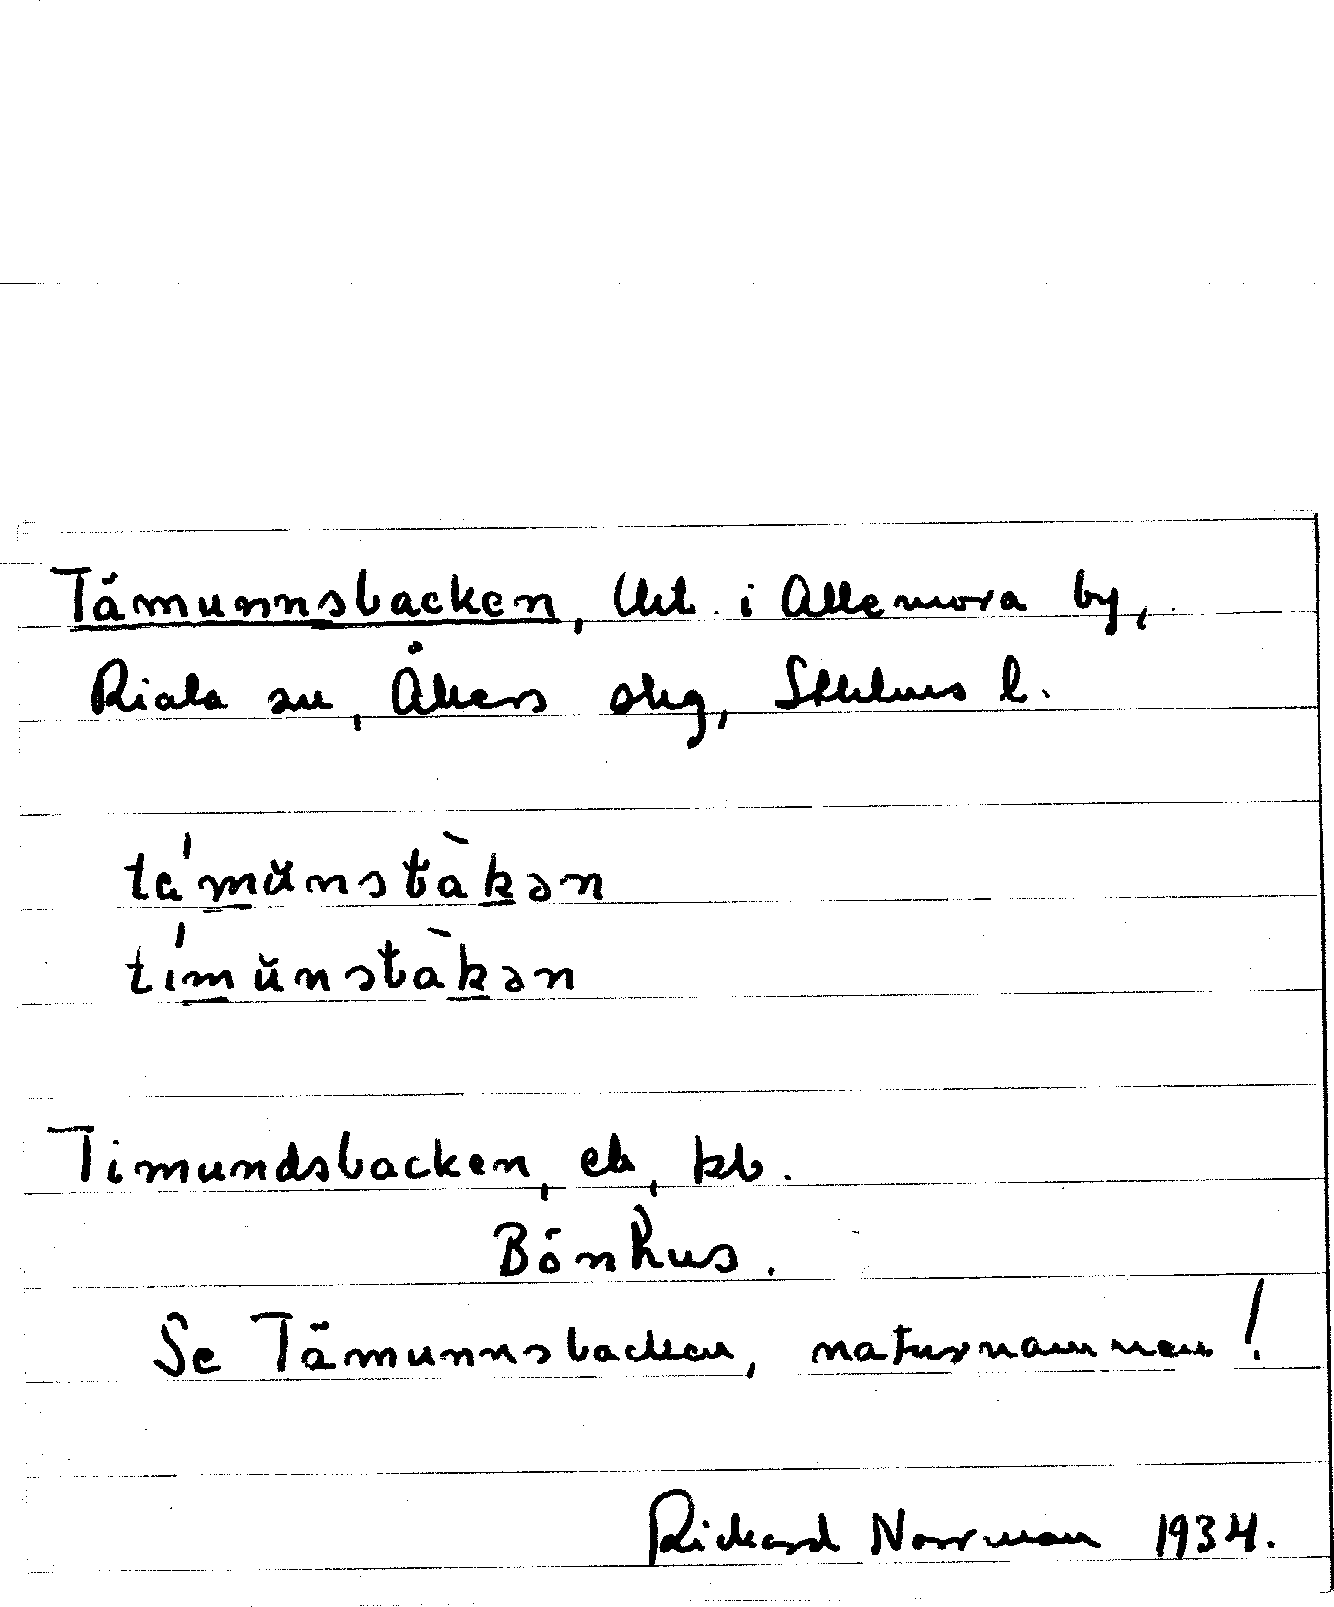 Tämunnsbacken, Ukt. i Allemora by,
Riala sn, Åkers skg, Sthlms l.
tä́mŭnsbàkən
tímŭnsbàkən
Timundsbacken, eb, kb.
Bönhus.
Se Tämunnsbacken, naturnamnen!
Rickard Norrman 1934.